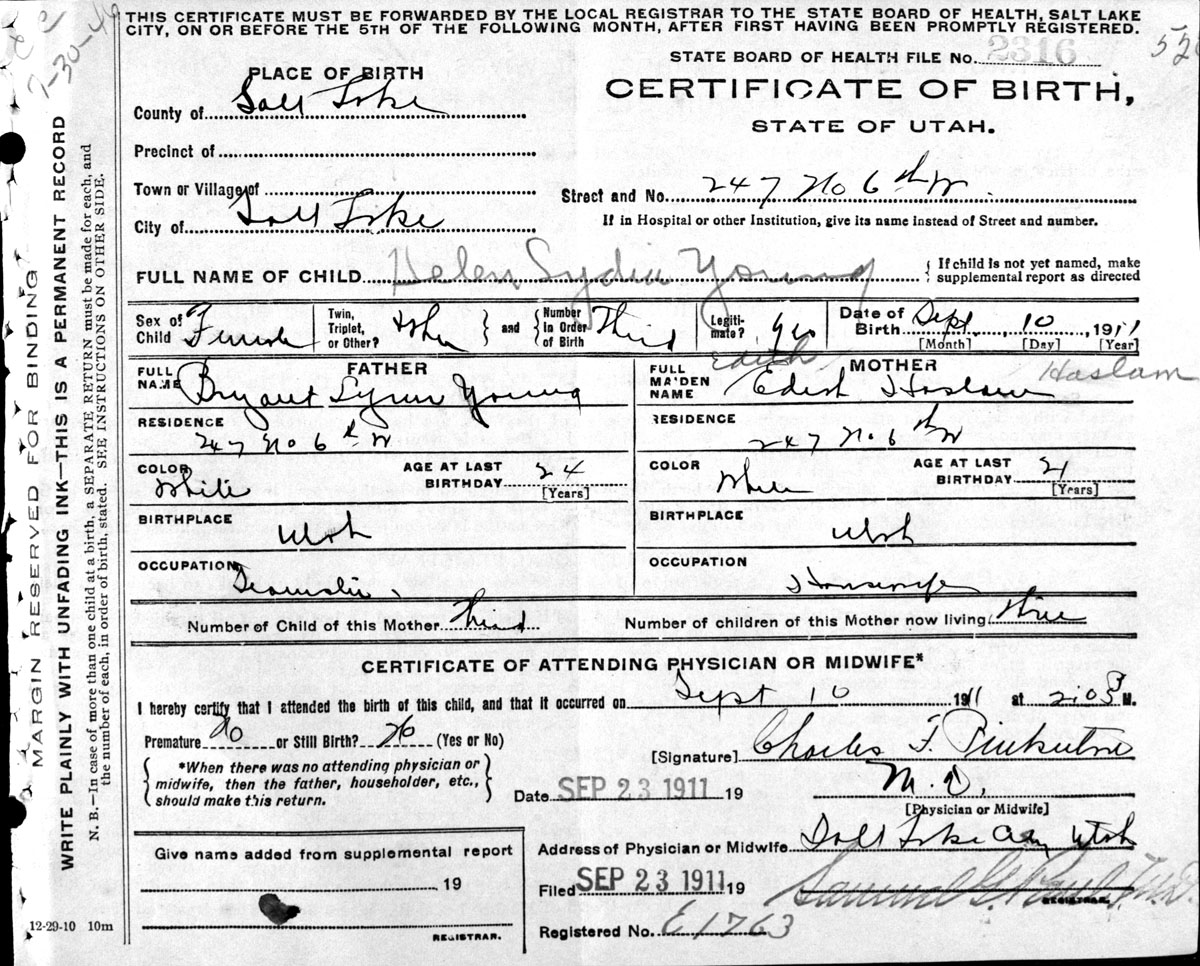 THIS CERTIFICATE MUST BE FORWARDED BY THE LOCAL REGISTRAR TO THE STATE BOARD OF HEALTH, SALT LAKE
CITY, ON OR BEFORE THE 5TH OF THE FOLLOWING MONTH, AFTER FIRST HAVING BEEN PROMPTLY REGISTERED.
7-30-49
52
STATE BOARD OF HEALTH FILE No. 2316
PLACE OF BIRTH
CERTIFICATE OF BIRTH,
STATE OF UTAH.
County of Salt Lake
Precinct of
Town or Village of
Street and No. 247 No 6th W
City of Salt Lake
If in Hospital or other Institution, give its name instead of Street and number.
FULL NAME OF CHILD Helen Lydia Young
If child is not yet named, make
supplemental report as directed
Sex of Child Female
Twin, Triplet, or Other?
and
Number in Order of Birth Third
Legiti- mate? Yes
Date of Birth Sept 10 1911
[Month] [Day] [Year]
FATHER
FULL NAME Bryant Lynn Young
RESIDENCE
247 No 6th W
COLOR White
AGE AT LAST BIRTHDAY 24
[Years]
BIRTHPLACE
Utah
OCCUPATION
Teamster
MOTHER
Edith Haslam
FULL MAIDEN NAME Edith Haslam
RESIDENCE
247 No 6th W
COLOR White
AGE AT LAST BIRTHDAY 21
[Years]
BIRTHPLACE
Utah
OCCUPATION
Housewife
Number of Child of this Mother Third
Number of children of this Mother now living Three
CERTIFICATE OF ATTENDING PHYSICIAN OR MIDWIFE*
I hereby certify that I attended the birth of this child, and that it occurred on Sept 10 1911 at 2:05 P M.
Premature No or Still Birth? No (Yes or No)
*When there was no attending physician or
midwife, then the father, householder, etc.,
should make this return.
[Signature] Charles F.
M.D.
[Physician or Midwife]
Date SEP 23 1911 19
Address of Physician or Midwife Salt Lake City Utah
Filed SEP 23 1911 19
Samuel G. Paul M.D.
REGISTRAR.
Registered No. E1763
Give name added from supplemental report
19
REGISTRAR.
12-29-10 10m
MARGIN RESERVED FOR BINDING
WRITE PLAINLY WITH UNFADING INK—THIS IS A PERMANENT RECORD
N. B.—In case of more than one child at a birth, a SEPARATE RETURN must be made for each, and
the number of each, in order of birth, stated. SEE INSTRUCTIONS ON OTHER SIDE.